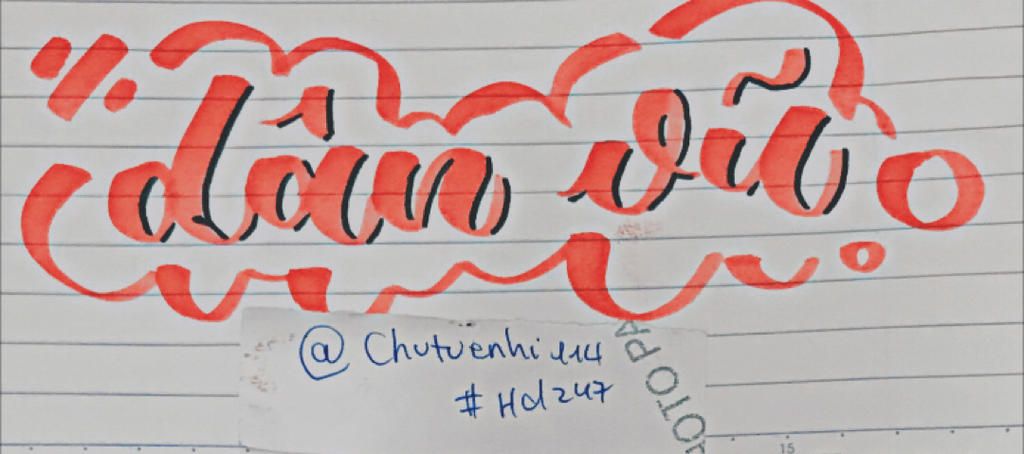 dân vũ
@Chutuenhi114
#Hd247
OTO PA
15